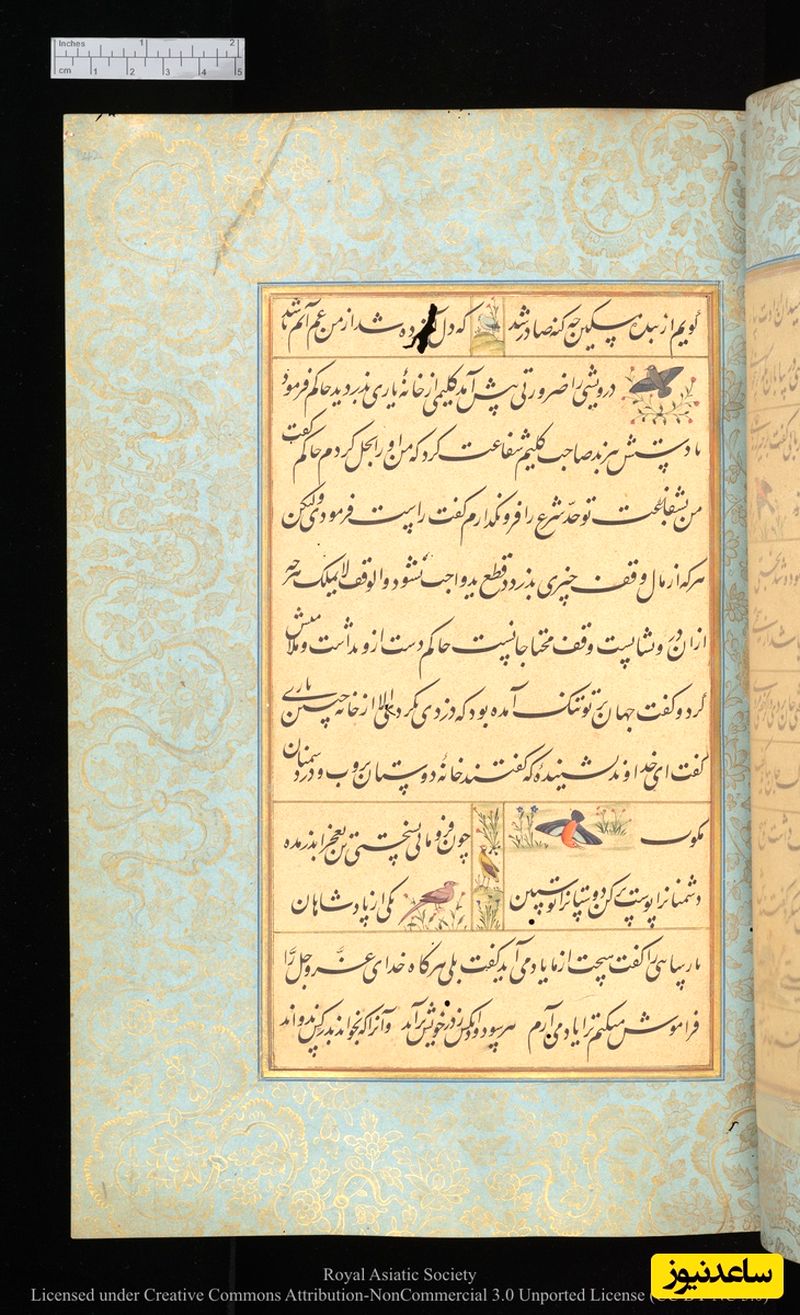 Inches 1 2
cm 1 2 3 4 5
گویم از بنده مسکین چه گنه صادر شد که دل آزرده شد از من غم آنم باشد
درویشی را ضرورتی پیش آمد گلیمی از خانهٔ یاری بدزدید حاکم فرمود
تا دستش ببرند صاحب گلیم شفاعت کرد که من او را بحل کردم حاکم گفت
من بشفاعت تو حد شرع را فرو نگذارم گفت راست فرمودی ولیکن
هر که از مال وقف چیزی بدزدد قطع ید واجب نشود والوقف لا یملک هر چه
ازان درویشانست وقف محتاجانست حاکم دست ازو بداشت و ملامتش
کرد و گفت جهان بر تو تنگ آمده بود که دزدی نکردی الا از خانه چنین یاری
گفت ای خداوند نشنیدهٔ که گفتند خانهٔ دوستان بروب و در دشمنان
مکوب چون فرومانی بسختی تن بعجز اندر مده
دشمنانرا پوست بر کن دوستانرا پوستین یکی از پادشاهان
پارسایی را گفت هیچت از ما یاد می آید گفت بلی هر گاه خدای عز و جل را
فراموش میکنم ترا یاد می آرم هر سو دود آنکس ز در خویش براند وآنرا که بخواند بدر کس ندواند
Royal Asiatic Society
Licensed under Creative Commons Attribution-NonCommercial 3.0 Unported License
ساعدنیوز